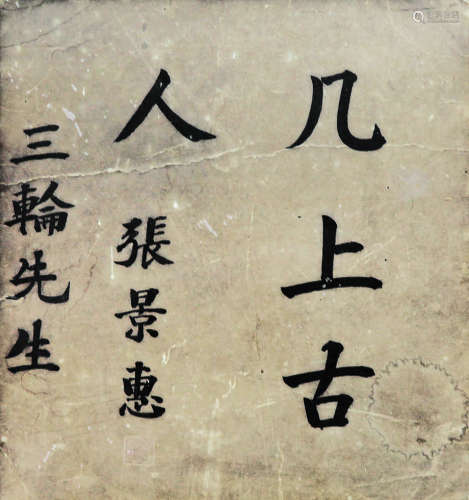 几上古
人
張景惠
三輪先生